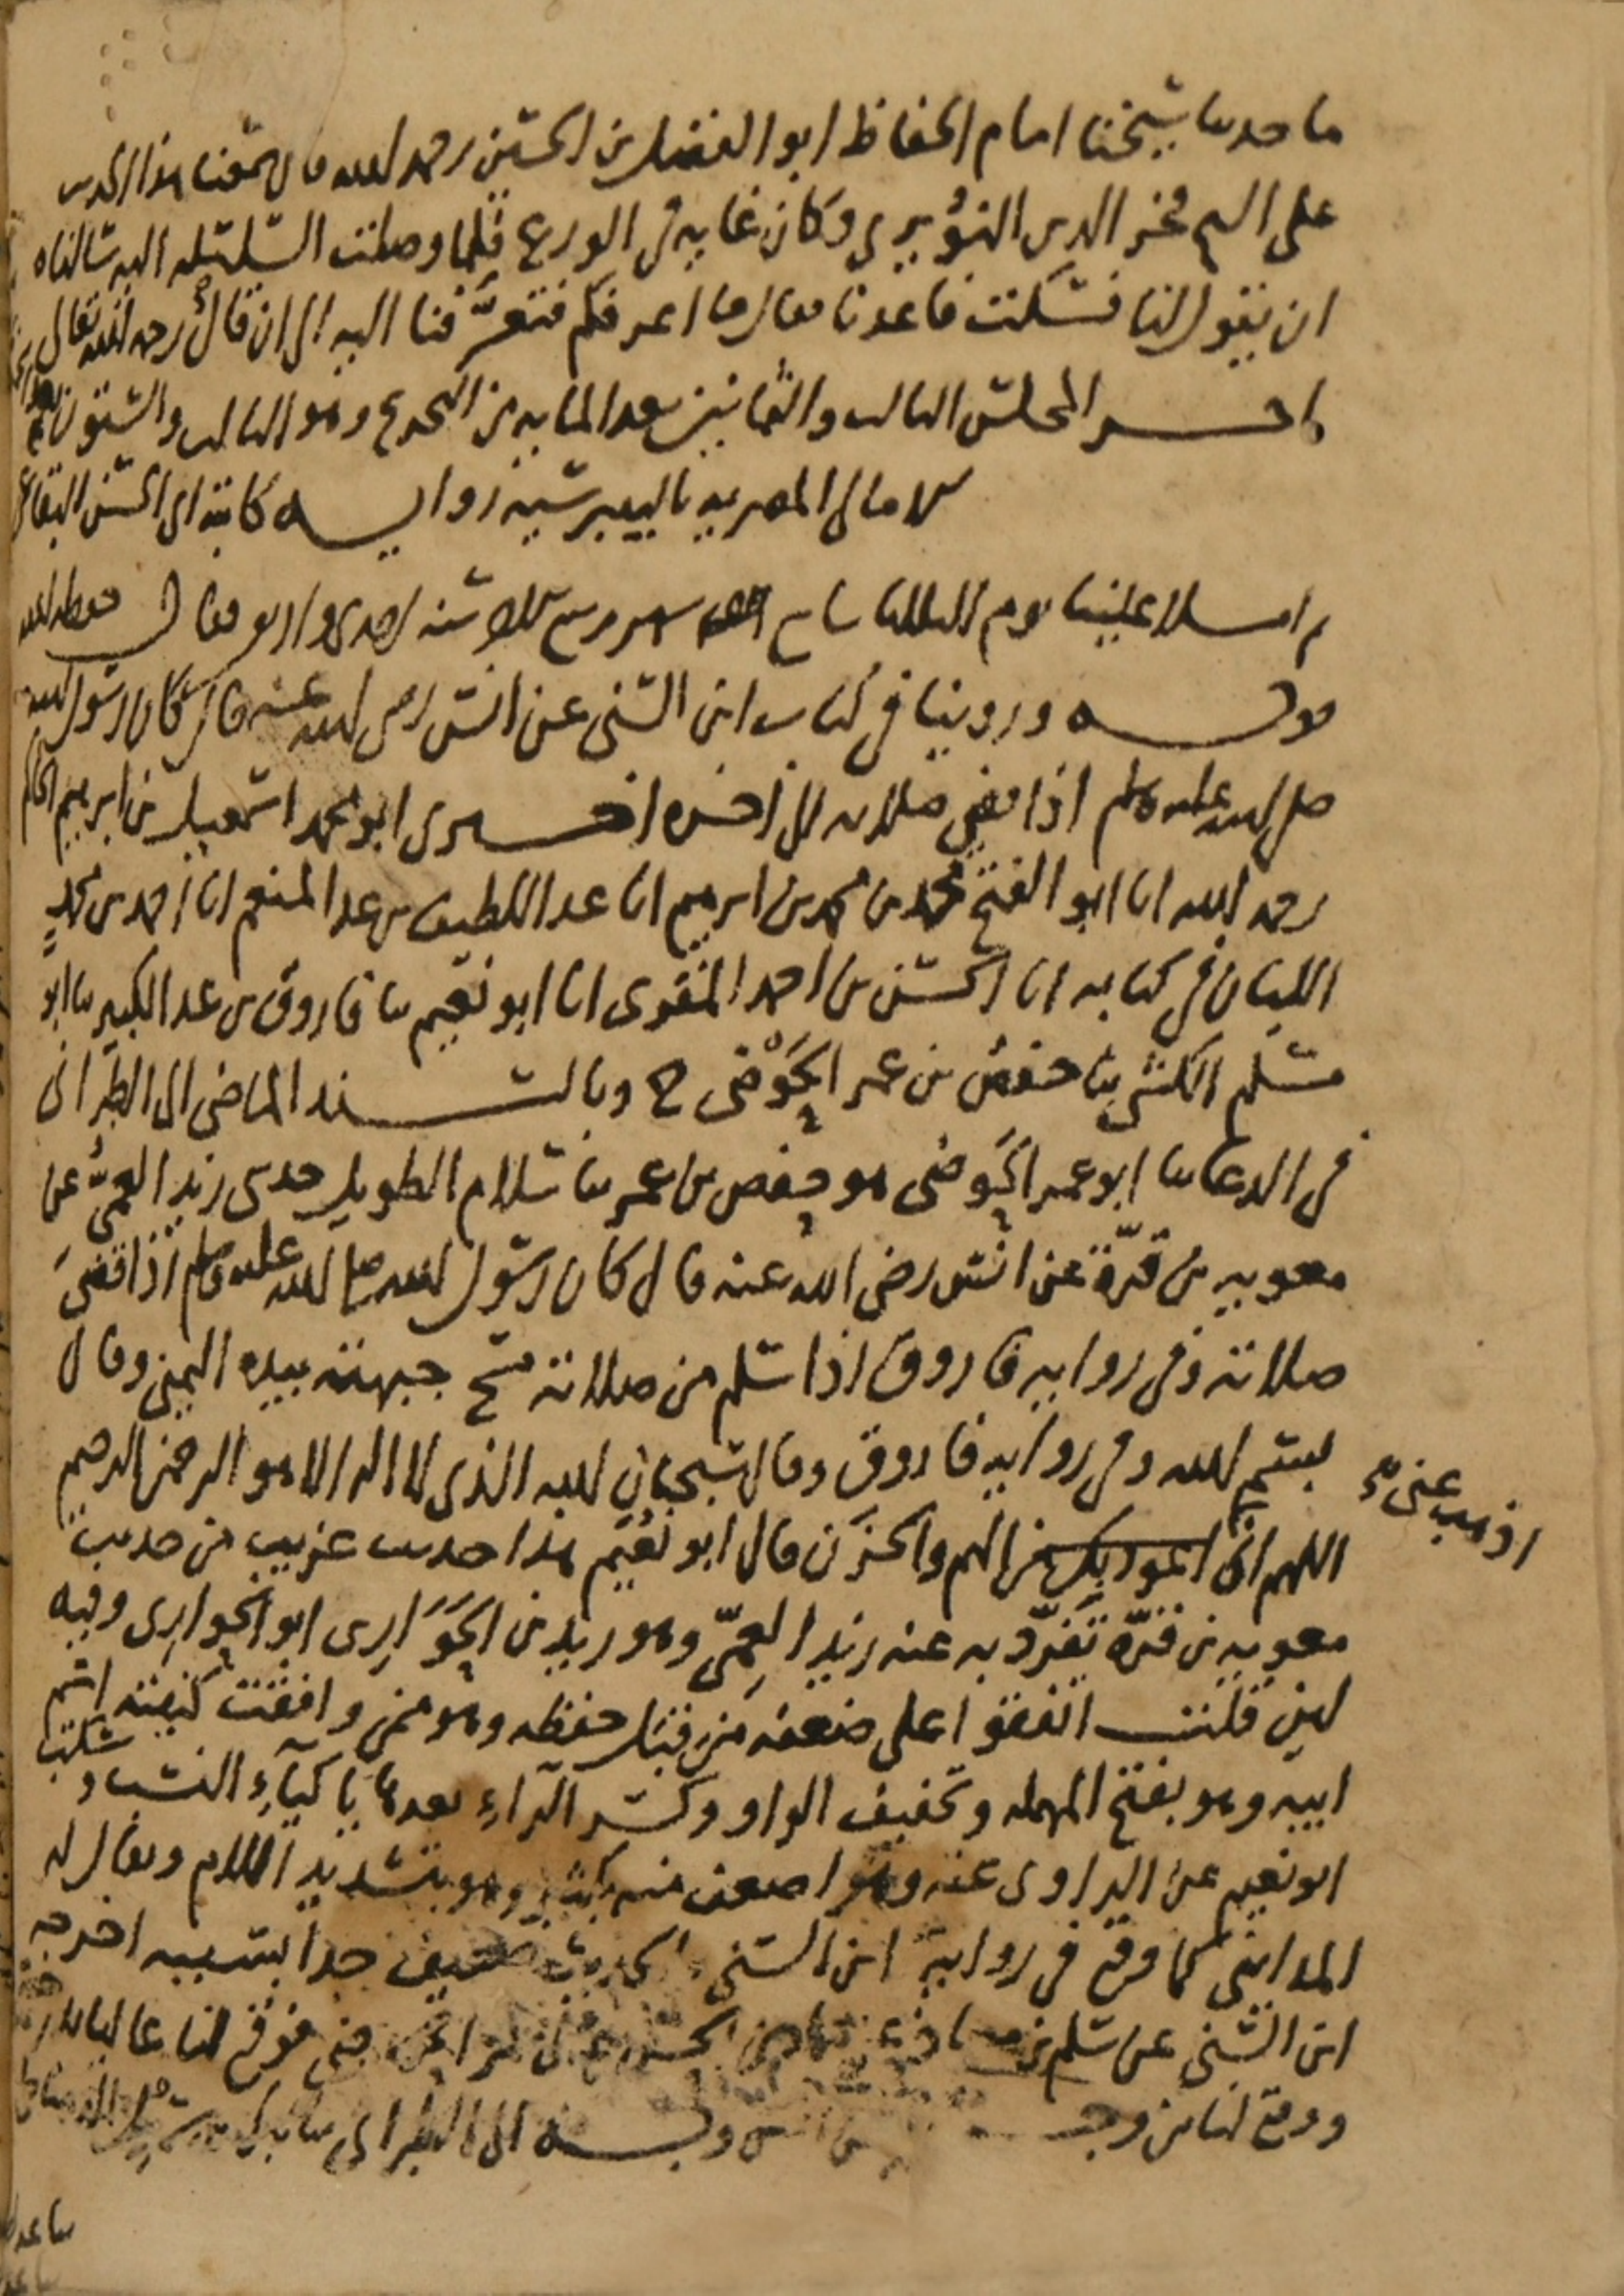 ما حدثنا شيخنا امام الحفاظ ابو الفضل بن الحسين رحمه الله قال سمعنا هذا الحديث
على الشيخ فخر الدين النويري وكان غاية في الورع فلما وصلت السلسلة اليه سالناه
ان يقول لنا فسكت فاعدنا فقال ما اعرفكم فتعرفنا اليه الى ان قال رحمه الله تعالى
اخر المجلس الثالث والثمانين بعد المايه من التخريج وهو الثالث والستون بعد
الامالي المصرية بالبيبرسية رواية كاتبه ابي الحسن البقاعي
ثم املا علينا يوم الثلاثا سنة احدى واربعين فقال حفظه الله
قوله وروينا في كتاب ابن السني عن انس رضي الله عنه قال كان رسول الله
صلى الله عليه وسلم اذا قضى صلاته الى اخره اخبرني ابو محمد اسمعيل بن ابرهيم الحاكم
رحمه الله انا ابو الفتح محمد بن محمد بن ابرهيم انا عبد اللطيف بن عبد المنعم انا احمد بن محمد
اللبان في كتابه انا الحسن بن احمد المقري انا ابو نعيم ثنا فاروق بن عبد الكبير ثنا ابو
مسلم الكشي ثنا حفص بن عمر الحوضي ح وبالسند الماضي الى الطبراني
في الدعا ثنا ابو عمر الحوضي هو حفص بن عمر ثنا سلام الطويل حدثني زيد العمي عن
معويه بن قرة عن انس رضي الله عنه قال كان رسول الله صلى الله عليه وسلم اذا قضى
صلاته وفي رواية فاروق اذا سلم من صلاته مسح جبهته بيده اليمنى وقال
بسم الله وفي رواية فاروق وقال سبحان الله الذي لا اله الا هو الرحمن الرحيم
اذهب عني
اللهم اني اعوذ بك من الهم والحزن قال ابو نعيم هذا حديث غريب من حديث
معويه بن قرة تفرد به عنه زيد العمي وهو زيد بن الحواري ابو الحواري وفيه
لين قلت اتفقوا على ضعفه من قبل حفظه وهو ممن وافقت كنيته اسم
ابيه وهو بفتح المهمله وتخفيف الواو وكسر الراء بعدها يا كياء النسب وسكت
ابو نعيم عن الراوي عنه وهو اضعف منه بكثير وهو بتشديد اللام ويقال له
المدايني كما وقع في رواية ابن السني الحديث ضعيف جدا بسببه اخرجه
ابن السني عن سلم بن معاذ عن حماد بن الحسن عن ابي عمر الحوضي فوقع لنا عاليا
ووقع لنا من وجه اخر عن انس وبه الى الطبراني ثنا بكر بن سهل الدمياطي